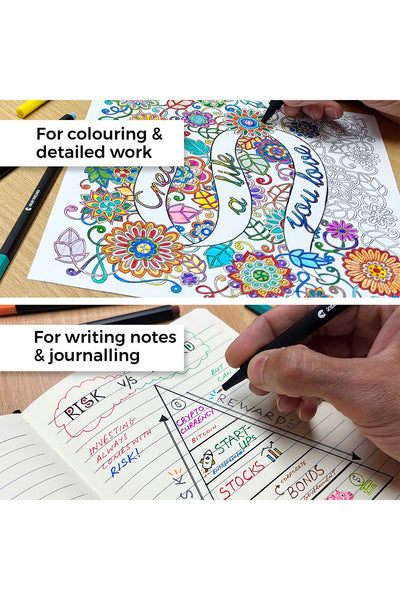 For colouring &
detailed work
Create
a life
you love
For writing notes
& journalling
RISK VS
REWARD?
BUT
CAN
INVESTING
ALWAYS
COMES WITH
RISK!
CRYPTO
CURRENCY
BITCOIN
START-
UPS
ENTREPRENEUR
STOCKS
CORPORATE
BONDS
GOVERNMENT